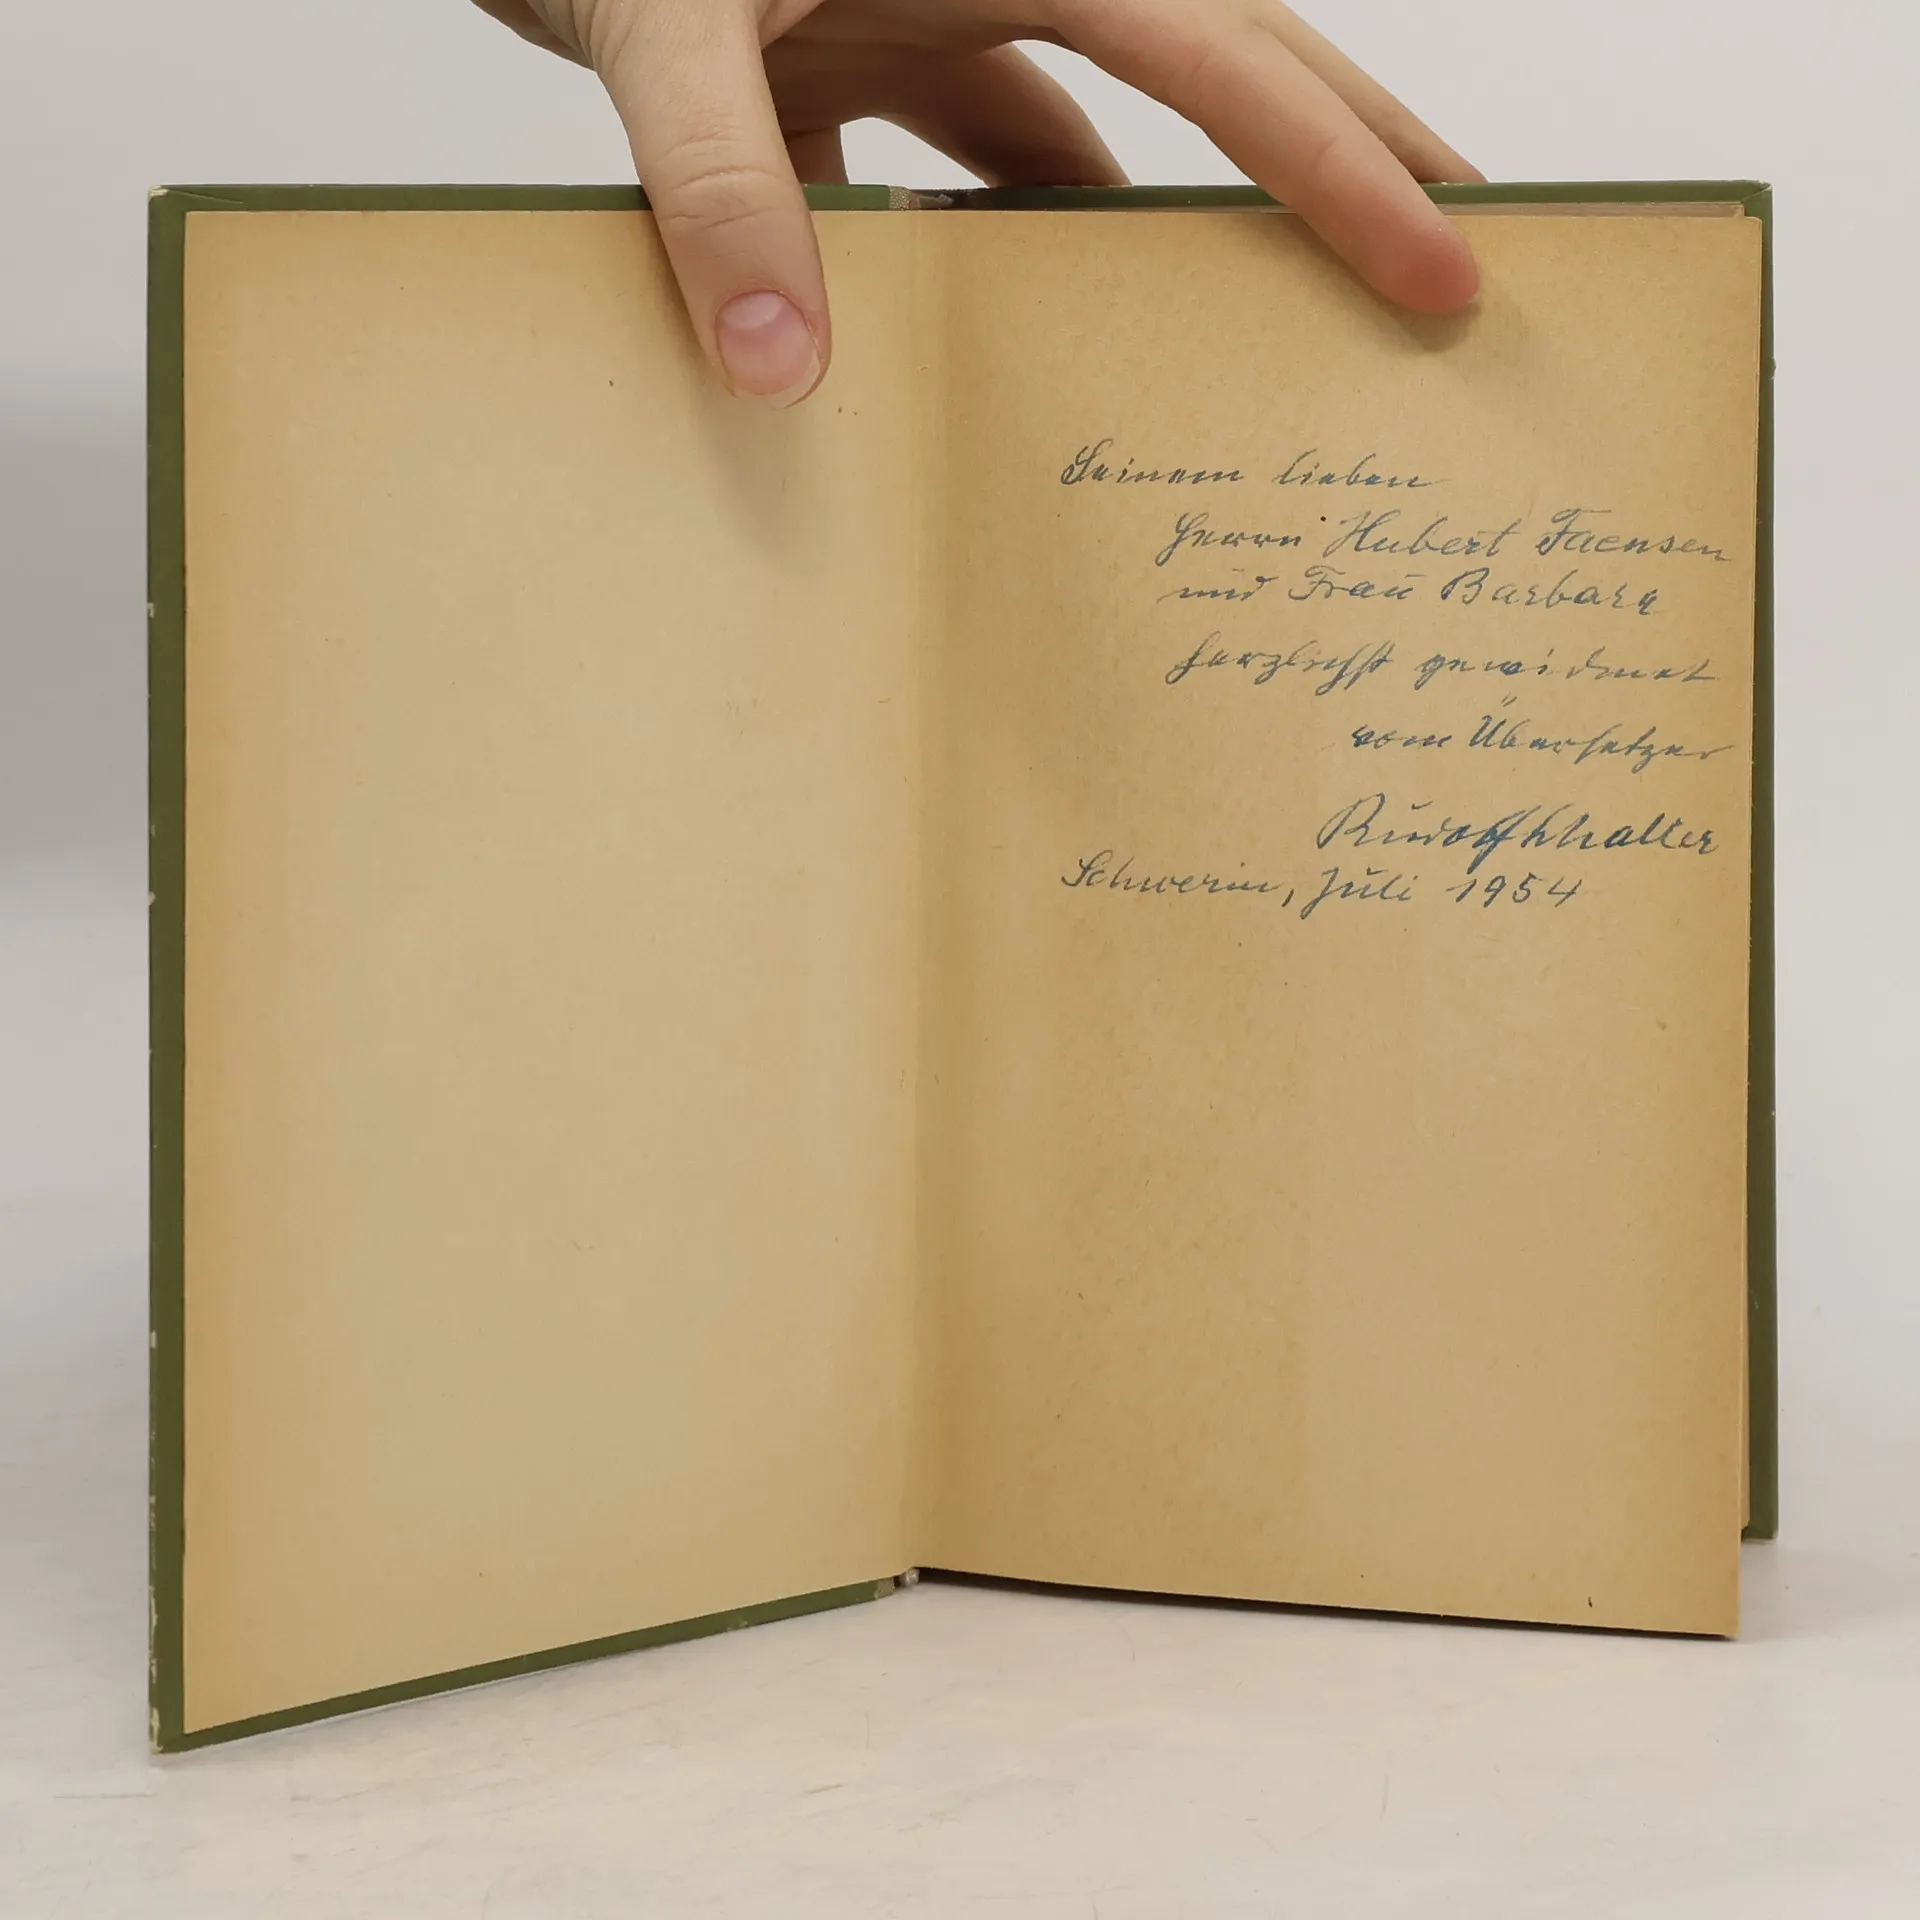 Seinem lieben
Herrn Hubert Faensen
und Frau Barbara
herzlichst gewidmet
vom Übersetzer
Rudolf Thaller
Schwerin, Juli 1954